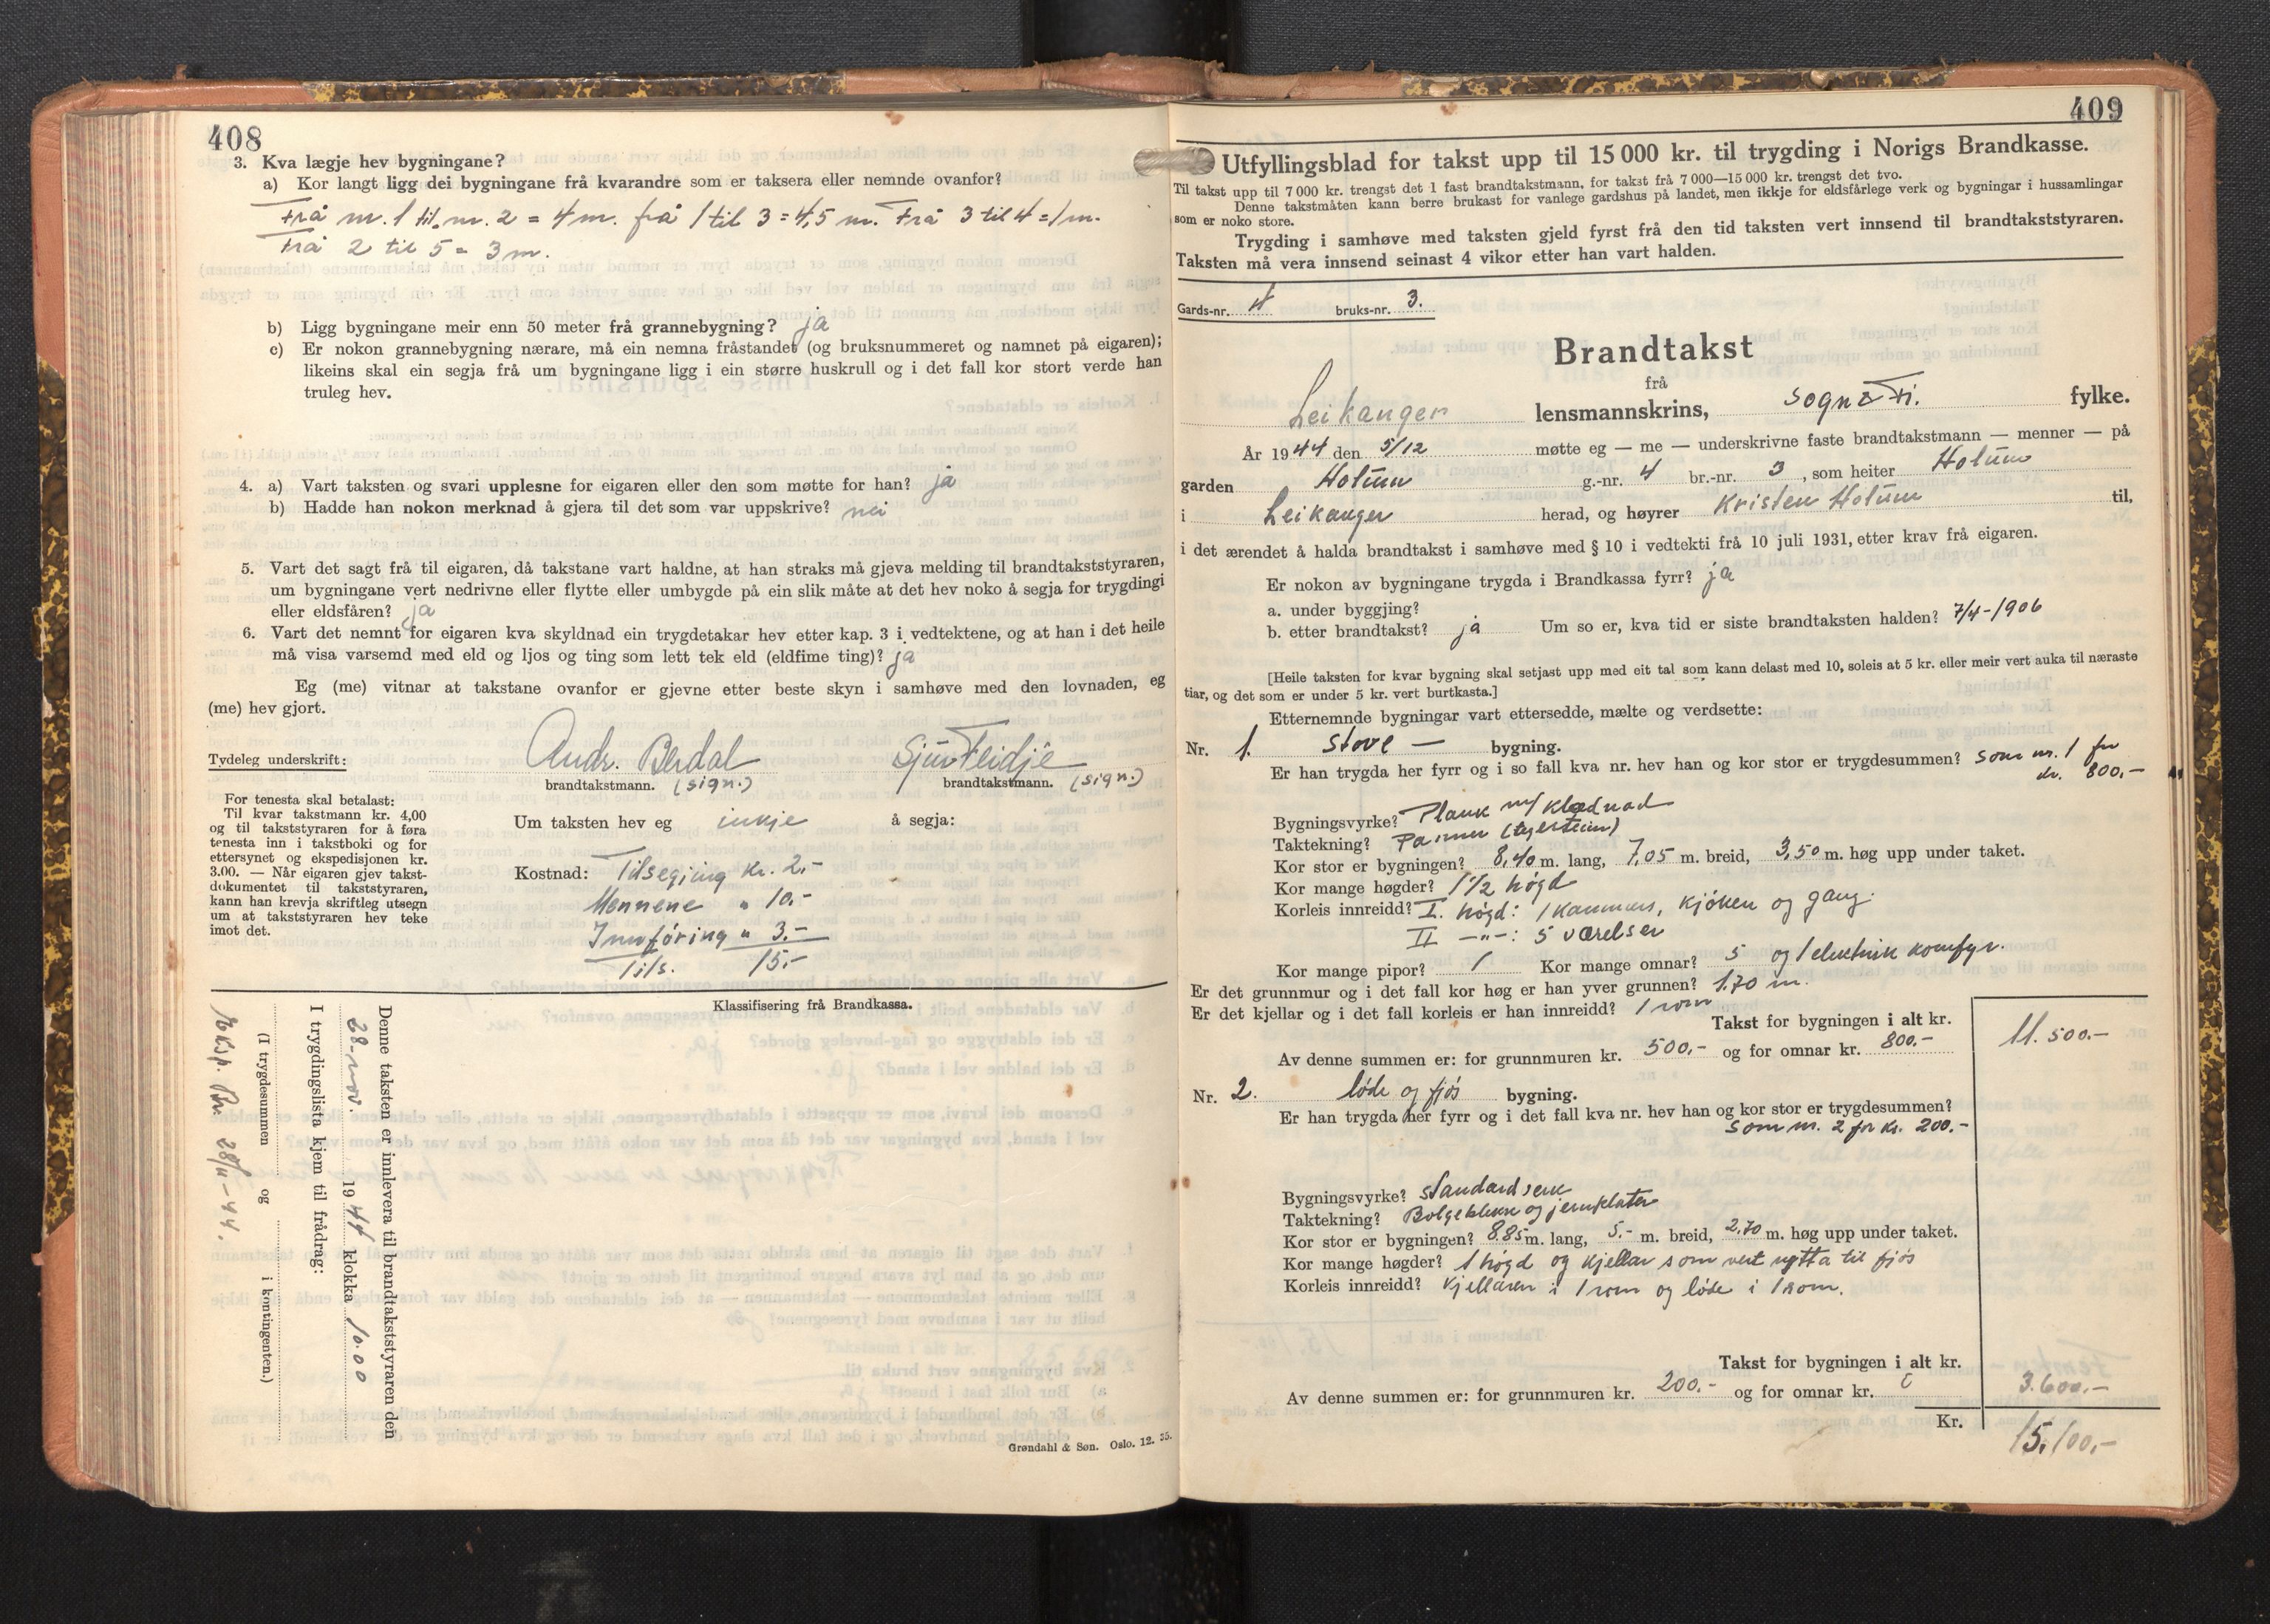 408
3. Kva lægje hev bygningane?
a) Kor langt ligg dei bygningane frå kvarandre som er taksera eller nemnde ovanfor?
Frå nr. 1 til nr. 2 = 4 m. frå 1 til 3 = 4,5 m. Frå 3 til 4 = 1 m.
Frå 2 til 5 = 3 m.
b) Ligg bygningane meir enn 50 meter frå grannebygning? ja
c) Er nokon grannebygning nærare, må ein nemna fråstandet (og bruksnummeret og namnet på eigaren);
likeins skal ein segja frå um bygningane ligg i ein større huskrull og i det fall kor stort verde han
truleg hev.
4. a) Vart taksten og svari upplesne for eigaren eller den som møtte for han? ja
b) Hadde han nokon merknad å gjera til det som var uppskrive? nei
5. Vart det sagt frå til eigaren, då takstane vart haldne, at han straks må gjeva melding til brandtakststyraren,
um bygningane vert nedrivne eller flytte eller umbygde på ein slik måte at det hev noko å segja for trygdingi
eller eldsfåren? ja
6. Vart det nemnt for eigaren kva skyldnad ein trygdetakar hev etter kap. 3 i vedtektene, og at han i det heile
må visa varsemd med eld og ljos og ting som lett tek eld (eldfime ting)? ja
Eg (me) vitnar at takstane ovanfor er gjevne etter beste skyn i samhøve med den lovnaden, eg
(me) hev gjort.
Tydeleg underskrift: Andr. Berdal Sjur Feidje
brandtakstmann. (sign.) brandtakstmann. (sign.)
For tenesta skal betalast:
Til kvar takstmann kr. 4,00
og til takststyraren for å føra
tenesta inn i takstboki og for
ettersynet og ekspedisjonen kr.
3.00. — Når eigaren gjev takst-
dokumentet til takststyraren,
kann han krevja skriftleg utsegn
um at takststyraren hev teke
imot det.
Um taksten hev eg inkje å segja:
Kostnad: Tilsegjing kr. 2,-
Mennene " 10.-
Innføring " 3.-
Tils. 15.-
Klassifisering frå Brandkassa.
Denne taksten er innlevera til brandtakststyraren den
28-nov. 1944 klokka 10.00
I trygdingslista kjem til frådrag:
(I trygdesummen og i kontingenten.)
Eksp. Br. 28/11-44.
Grøndahl & Søn. Oslo. 12. 35.
409
Utfyllingsblad for takst upp til 15 000 kr. til trygding i Norigs Brandkasse.
Til takst upp til 7 000 kr. trengst det 1 fast brandtakstmann, for takst frå 7 000—15 000 kr. trengst det tvo.
Denne takstmåten kann berre brukast for vanlege gardshus på landet, men ikkje for eldsfårlege verk og bygningar i hussamlingar
som er noko store.
Trygding i samhøve med taksten gjeld fyrst frå den tid taksten vert innsend til brandtakststyraren.
Taksten må vera innsend seinast 4 vikor etter han vart halden.
Gards-nr. 4 bruks-nr. 3.
Brandtakst
frå
Leikanger lensmannskrins, Sogn & Fj. fylke.
År 1944 den 5/12 møtte eg — me — underskrivne faste brandtakstmann — menner — på
garden Holum g.-nr. 4 br.-nr. 3, som heiter Holum
i Leikanger herad, og høyrer Kristen Holum til,
i det ærendet å halda brandtakst i samhøve med § 10 i vedtekti frå 10 juli 1931, etter krav frå eigaren.
Er nokon av bygningane trygda i Brandkassa fyrr? ja
a. under byggjing?
b. etter brandtakst? ja Um so er, kva tid er siste brandtaksten halden? 7/4-1906
[Heile taksten for kvar bygning skal setjast upp med eit tal som kann delast med 10, soleis at 5 kr. eller meir vert auka til næraste
tiar, og det som er under 5 kr. vert burtkasta.]
Etternemnde bygningar vart ettersedde, mælte og verdsette:
Nr. 1. Stove — bygning.
Er han trygda her fyrr og i so fall kva nr. hev han og kor stor er trygdesummen? som nr. 1 for
kr. 800,-
Bygningsvyrke? Plank m/ klednad
Taktekning? Panner (teglstein)
Kor stor er bygningen? 8,40 m. lang, 7,05 m. breid, 3,50 m. høg upp under taket.
Kor mange høgder? 1 1/2 høgd
Korleis innreidd? I. høgd: 1 kammers, kjøken og gang.
II —"—: 5 værelser
Kor mange pipor? 1 Kor mange omnar? 5 og 1 elektrisk komfyr.
Er det grunnmur og i det fall kor høg er han yver grunnen? 1.70 m.
Er det kjellar og i det fall korleis er han innreidd? 1 rom
Takst for bygningen i alt kr. 11.500.-
Av denne summen er: for grunnmuren kr. 500,- og for omnar kr. 800.-
Nr. 2. løde og fjøs bygning.
Er han trygda her fyrr og i det fall kva nr. hev han og kor stor er trygdesummen?
som nr. 2 for kr. 200.-
Bygningsvyrke? Standardverk
Taktekning? Bølgeblekk og jernplater
Kor stor er bygningen? 8.85 m. lang, 5.- m. breid, 2.70 m. høg upp under taket.
Kor mange høgder? 1 høgd og kjellar som vert nytta til fjøs
Korleis innreidd? Kjellaren i 1 rom og løde i 1 rom.
Takst for bygningen i alt kr. 3.600.-
Av denne summen er: for grunnmuren kr. 200.- og for omnar kr.
Kr. 15.100,-